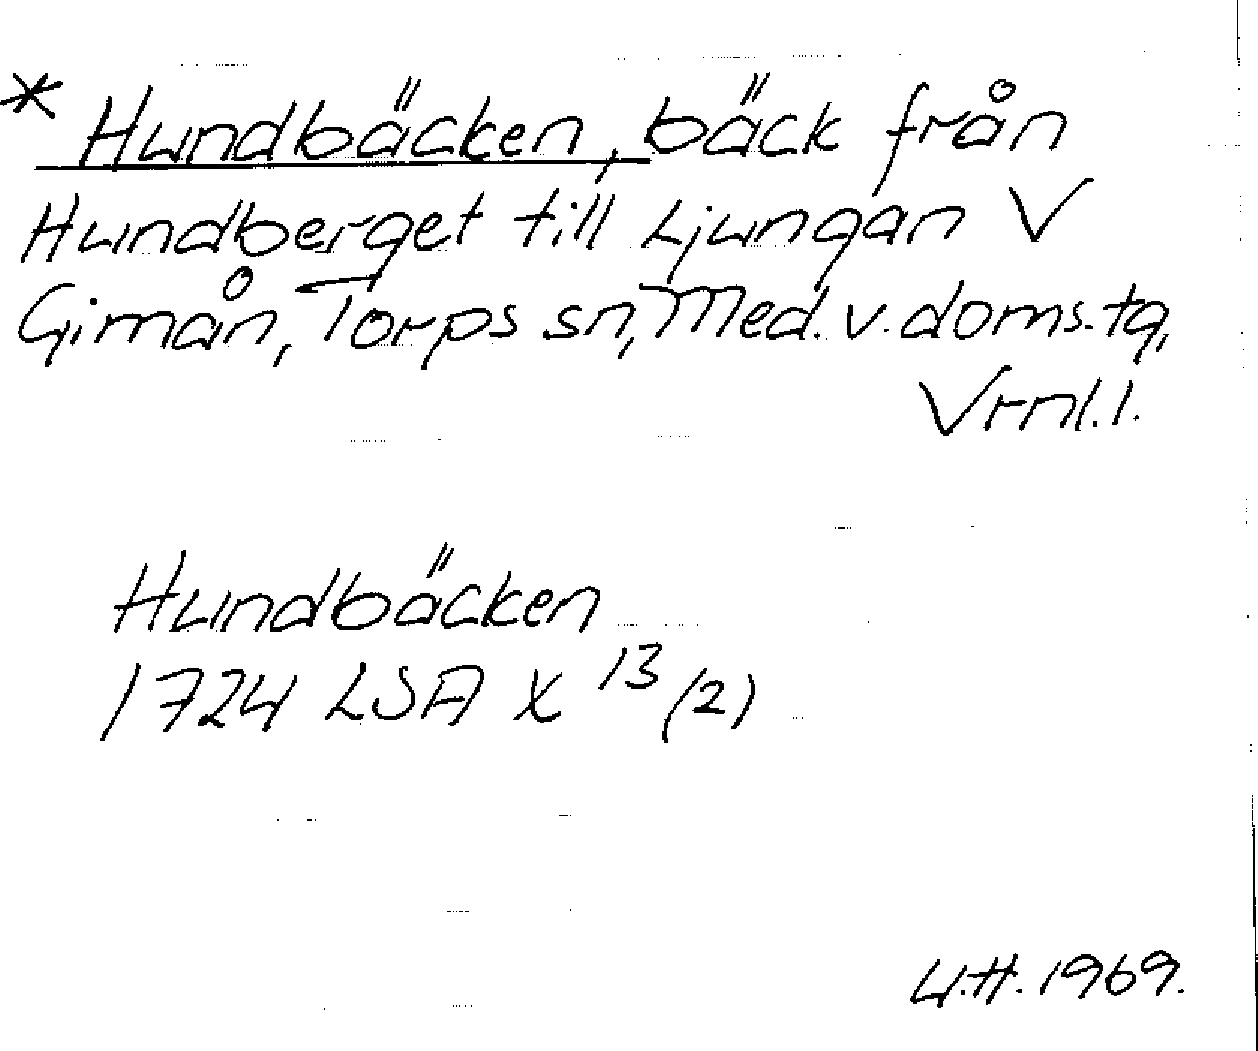 * Hundbäcken, bäck från
Hundberget till Ljungan V
Gimån, Torps sn, Med. v. doms. tg,
Vrnl. l.
Hundbäcken
1724 LSA X 13 (2)
U.H. 1969.